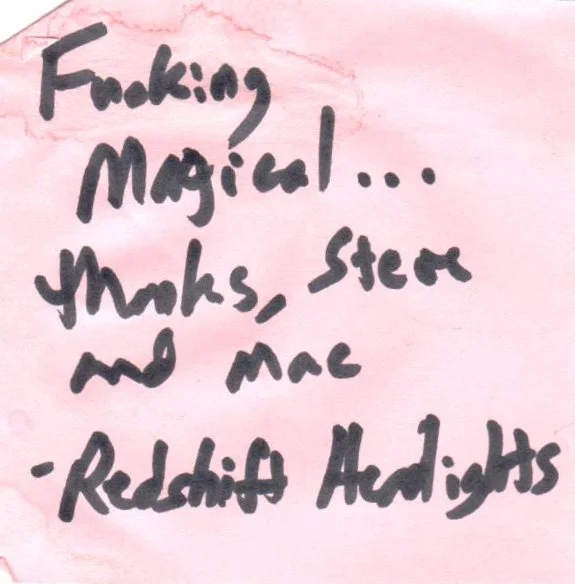 Fucking
Magical...
thanks, Steve
and Mac
-Redshift Headlights